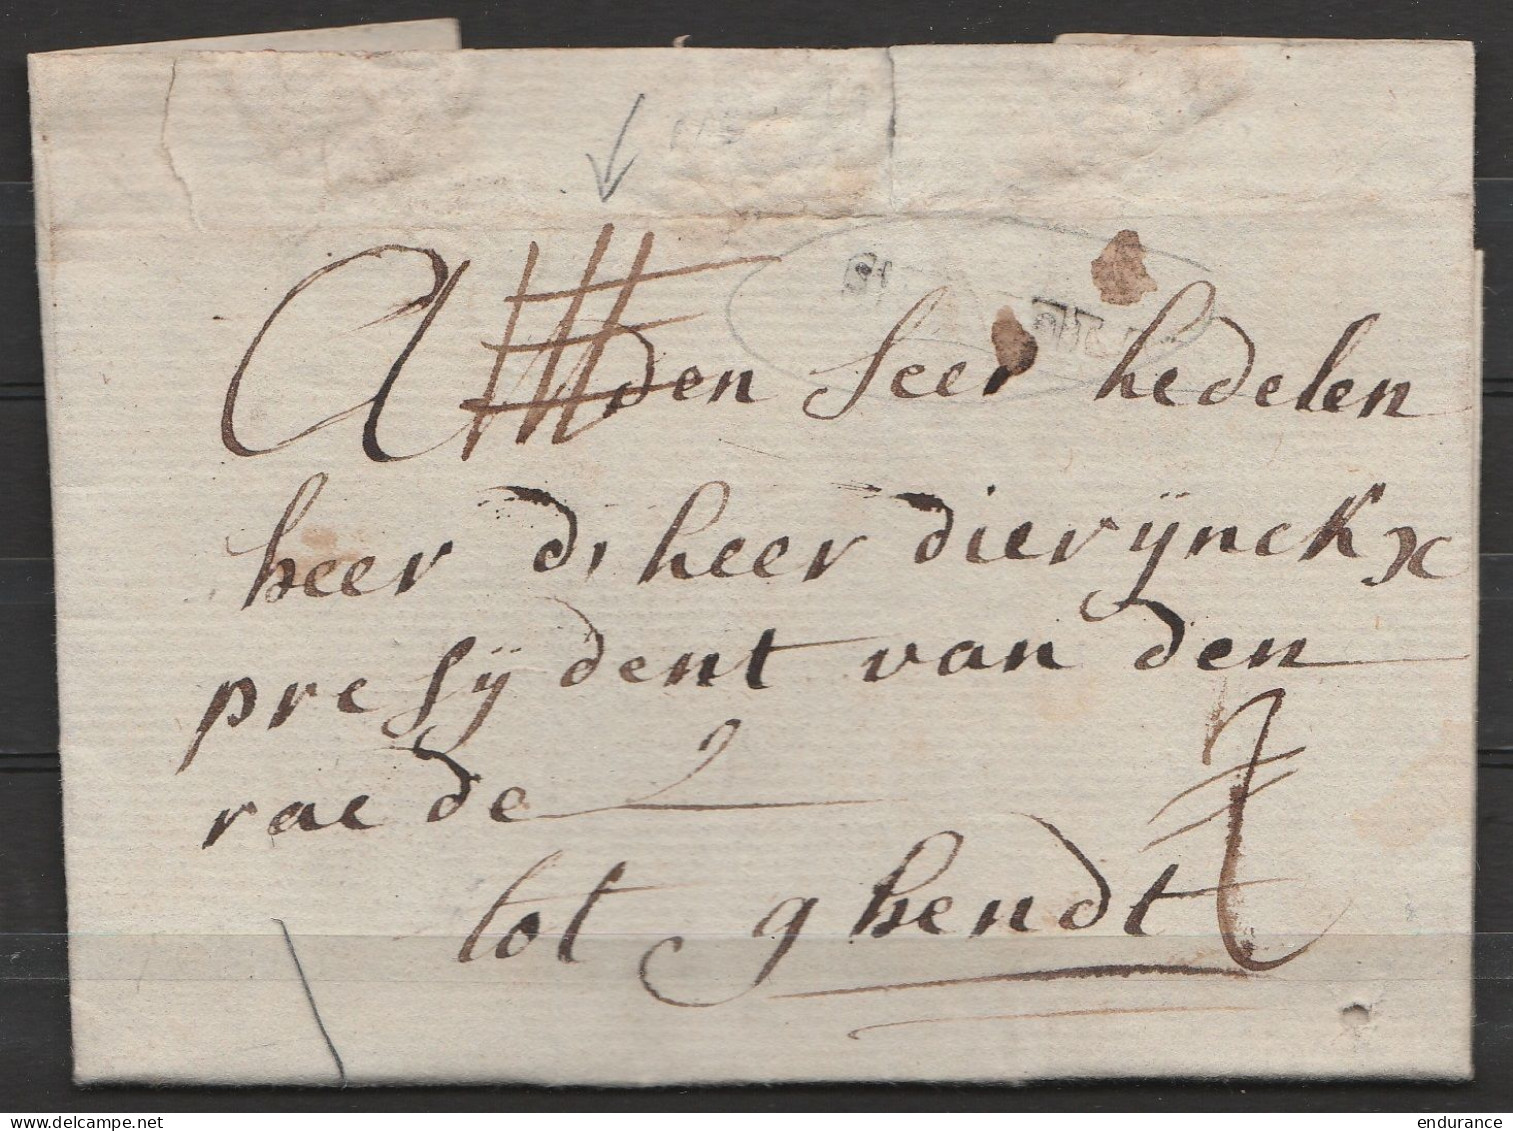 Aen den seer hedelen
heer d, heer dierijnckx
presijdent van den
raede
tot ghendt
www.delcampe.net
endurance